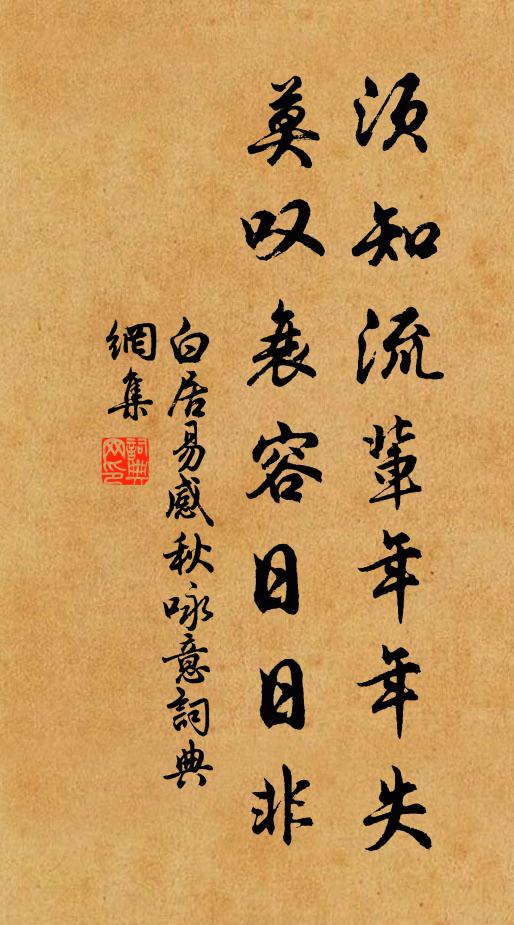 须知流輩年年失
莫叹衰容日日非
白居易感秋咏意詞典
網集
詞典
网印